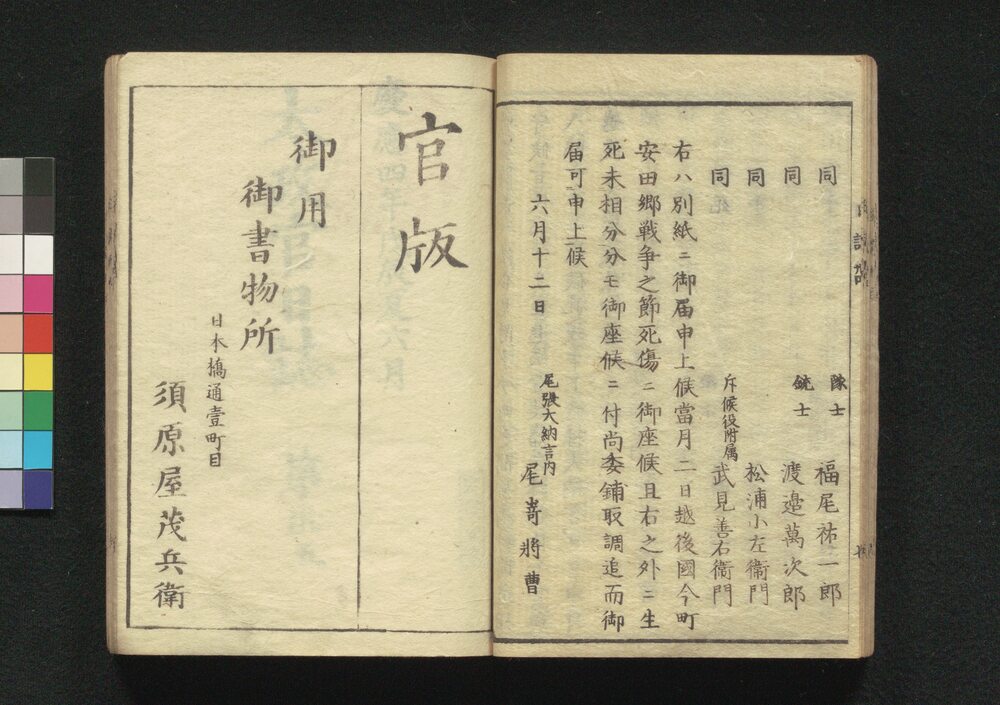 同　隊士　福尾祐一郎
同　銃士　渡邉萬次郎
同　松浦小左衛門
同　斥候役附属　武見善右衛門
右ハ別紙ニ御届申上候當月二日越後國今町
安田郷戦争之節死傷ニ御座候且右之外ニ生
死未相分分モ御座候ニ付尚委鋪取調追而御
届可申上候
六月十二日
尾張大納言内　尾嵜将曹
官版
御用
御書物所
日本橋通壹町目
須原屋茂兵衛